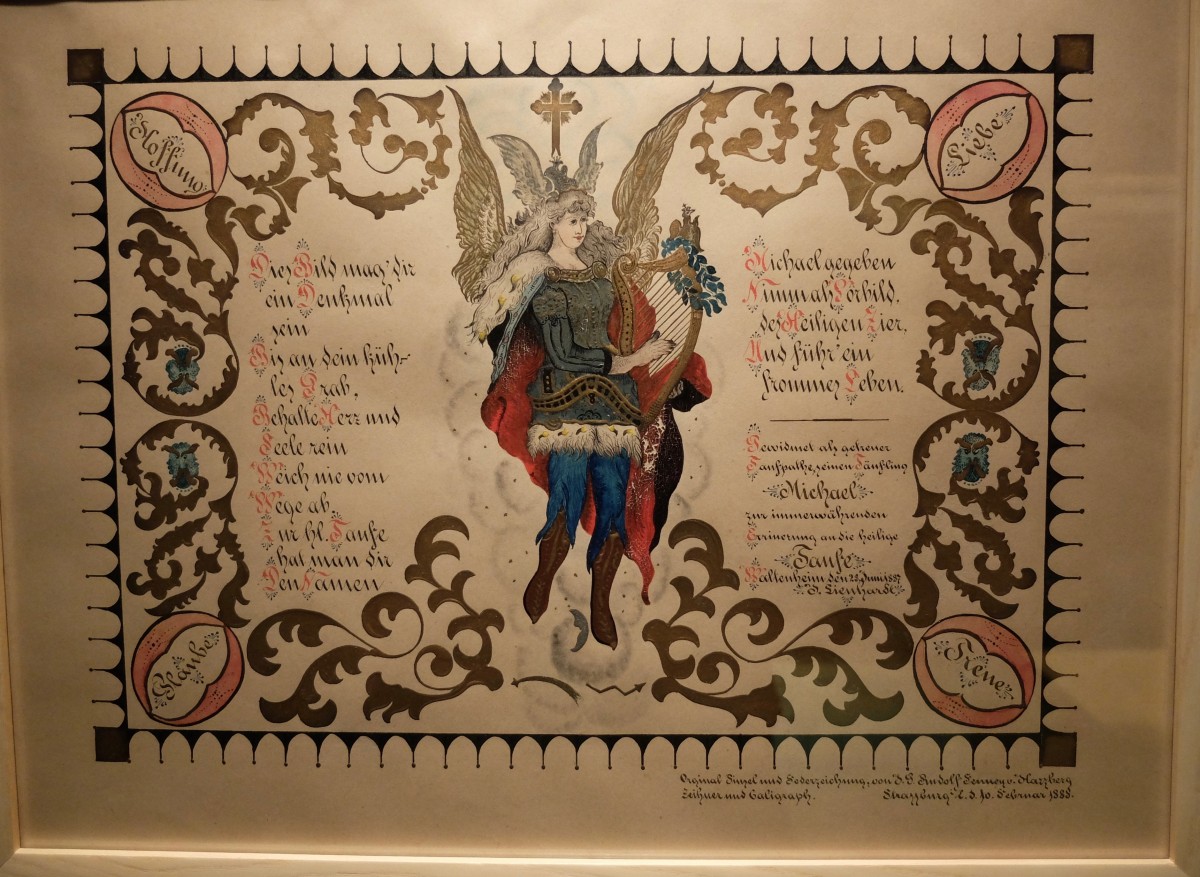 Hoffnung
Liebe
Dies Bild mag' dir
ein Denkmal
sein
Bis an dein küh-
les Grab,
Behalte Herz und
Seele rein
Weich nie vom
Wege ab.
Zur hl. Taufe
hat man dir
Den Namen
Michael gegeben
Nimm als Vorbild,
des Heiligen Zier,
Und führ' ein
frommes Leben.
Gewidmet als getreuer
Taufpathe, seinen Täufling
Michael
zur immerwährenden
Errinerung an die heilige
Taufe
Waltenheim den 28. Juni 1887
J. Lienhardt
Glaube
Treue
Orginal Pinsel und Federzeichung, von J. G. Rudolf v. Harzberg
Zeihner und Caligraph. Strassburg i. E. 10. Februar 1888.